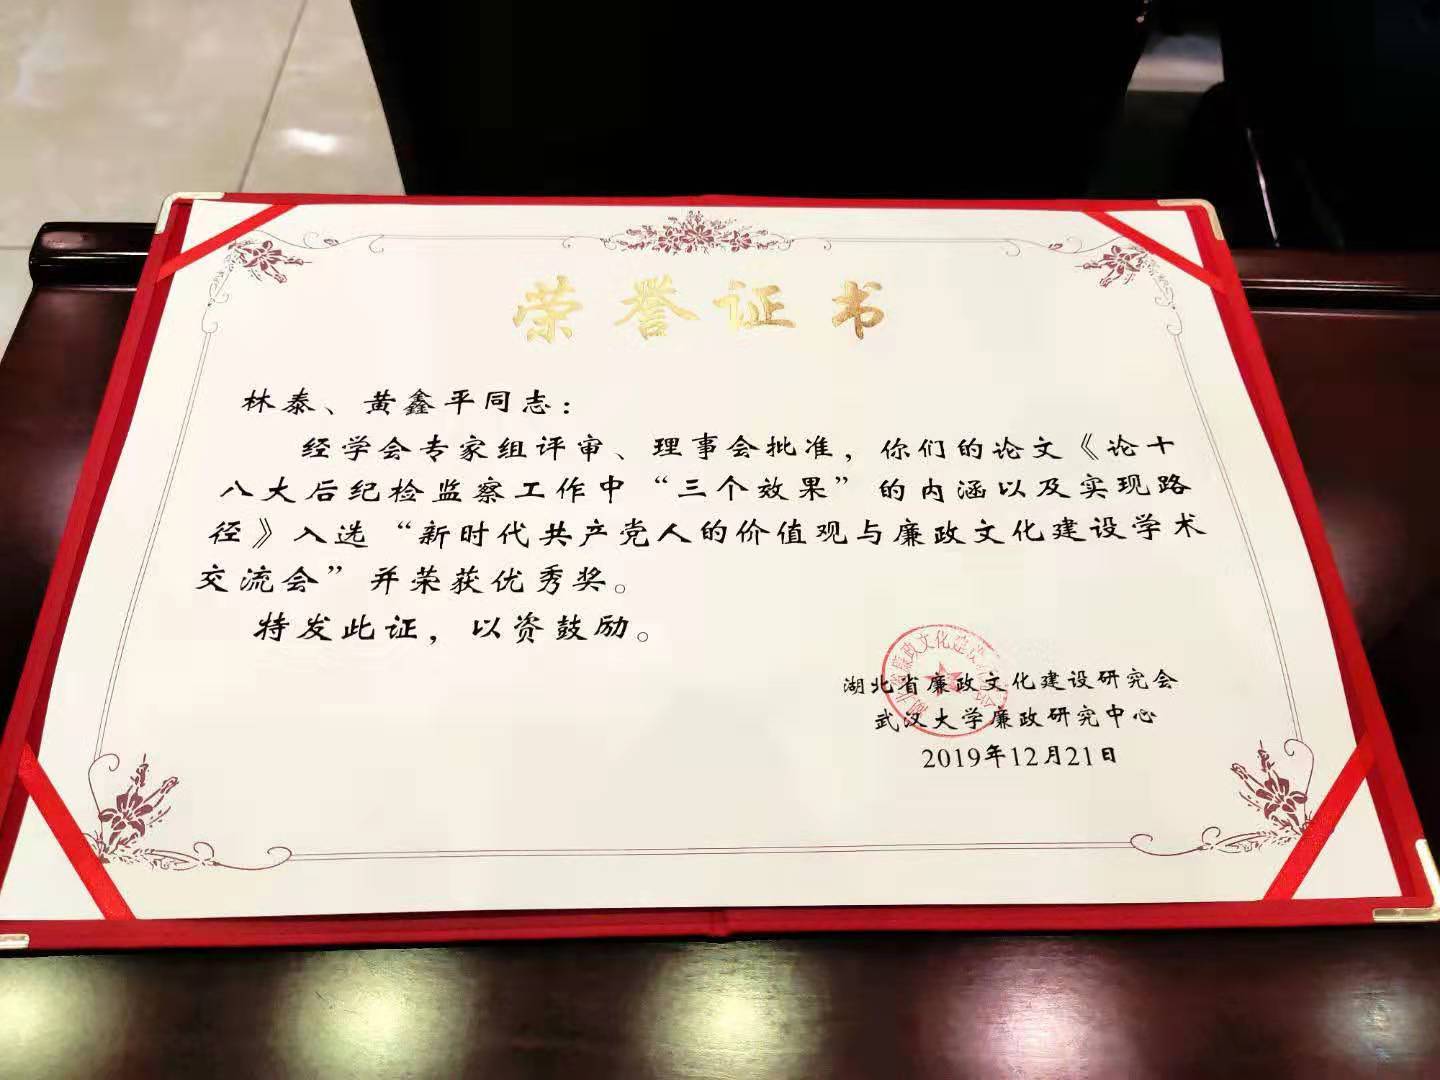 荣誉证书
林泰、黄鑫平同志：
经学会专家组评审、理事会批准，你们的论文《论十
八大后纪检监察工作中“三个效果”的内涵以及实现路
径》入选“新时代共产党人的价值观与廉政文化建设学术
交流会”并荣获优秀奖。
特发此证，以资鼓励。
湖北省廉政文化建设研究会
武汉大学廉政研究中心
2019年12月21日
湖北省廉政文化建设研究会